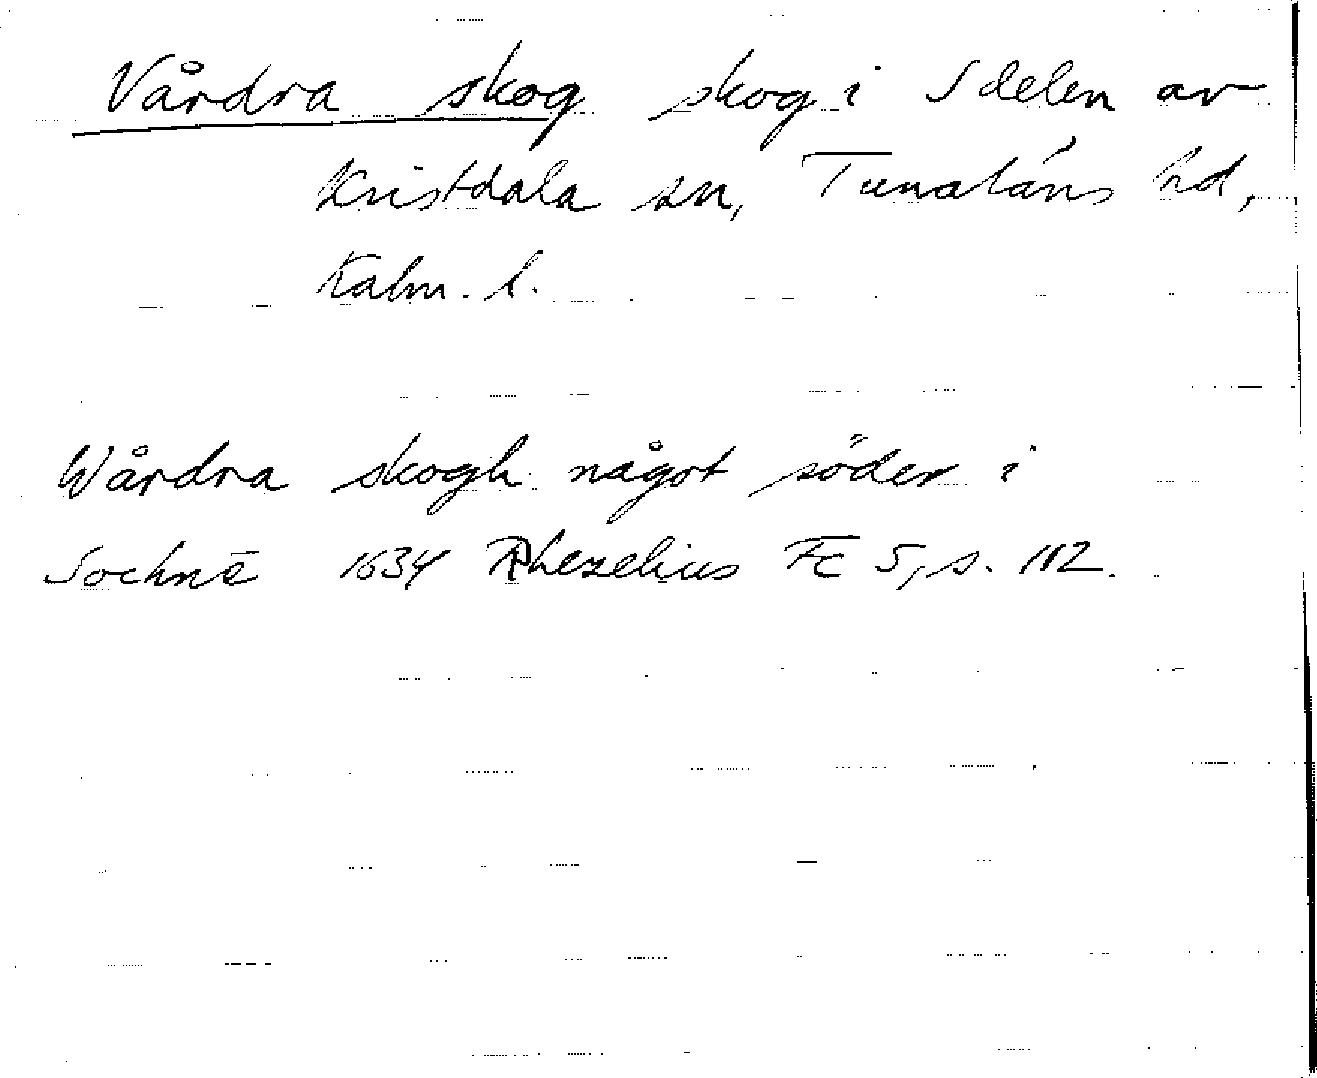 Vårdra skog skog i S delen av
Kristdala sn, Tunaläns hd,
Kalm. l.
Wårdra skogh något söder i
Sochnē 1634 Rhezelius Fc 5, s. 112.